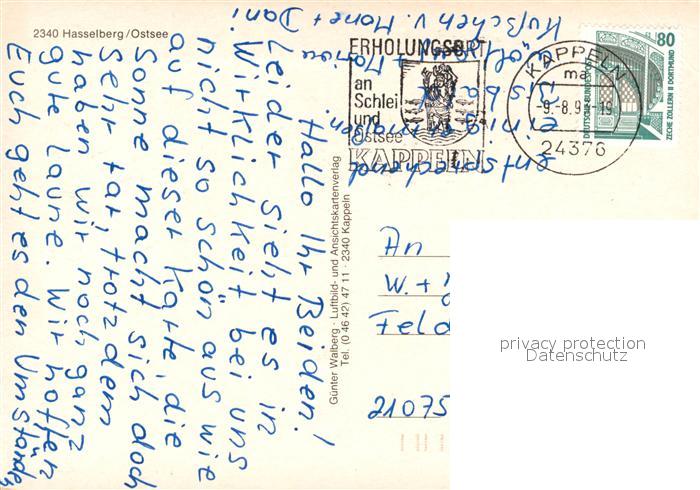 2340 Hasselberg/Ostsee
Hallo Ihr Beiden!
Leider sieht es in
Wirklichkeit bei uns
nicht so schön aus wie
auf dieser Karte, die
Sonne macht sich doch
sehr rar, trotzdem
haben wir noch ganz
gute Laune. Wir hoffen
Euch geht es den Umständen
Entsprechend
Einigermaßen.
Bis bald
Marion
Küßchen v. Mone + Dani
Günter Walberg · Luftbild- und Ansichtskartenverlag
Tel. (0 46 42) 47 11 · 2340 Kappeln
ERHOLUNGSORT
an
Schlei
und
Ostsee
KAPPELN
KAPPELN
ma
-9.-8.9 -19
24376
80
DEUTSCHE BUNDESPOST
ZECHE ZOLLERN II DORTMUND
An
W. +
Feld
21075
privacy protection
Datenschutz